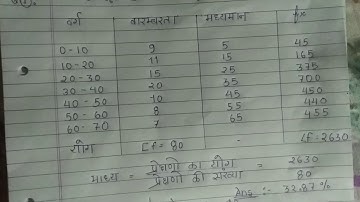 वर्ग बारम्बारता मध्यमान fx
0-10 9 5 45
10-20 11 15 165
20-30 15 25 375
30-40 20 35 700
40-50 10 45 450
50-60 8 55 440
60-70 7 65 455
योग Σf = 80 - Σf=2630
माध्य = प्रेक्षणों का योग / प्रेक्षणों की संख्या = 2630 / 80
Ans :- 32.87%